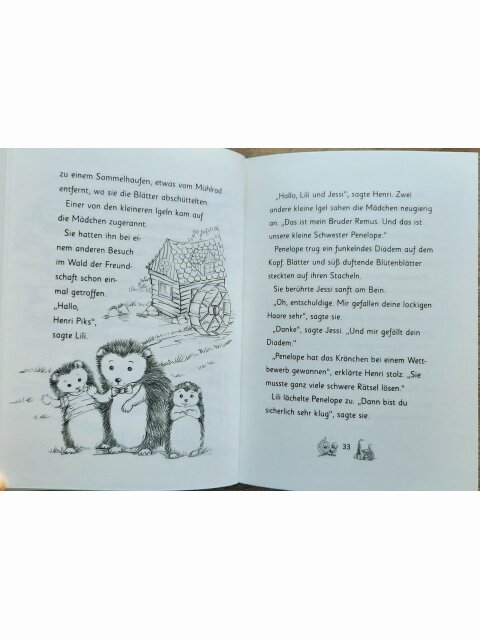 zu einem Sammelhaufen, etwas vom Mühlrad
entfernt, wo sie die Blätter abschüttelten.
Einer von den kleineren Igeln kam auf
die Mädchen zugerannt.
Sie hatten ihn bei ei-
nem anderen Besuch
im Wald der Freund-
schaft schon ein-
mal getroffen.
„Hallo,
Henri Piks“,
sagte Lili.
„Hallo, Lili und Jessi“, sagte Henri. Zwei
andere kleine Igel sahen die Mädchen neugierig
an. „Das ist mein Bruder Remus. Und das ist
unsere kleine Schwester Penelope.“
Penelope trug ein funkelndes Diadem auf dem
Kopf. Blätter und süß duftende Blütenblätter
steckten auf ihren Stacheln.
Sie berührte Jessi sanft am Bein.
„Oh, entschuldige. Mir gefallen deine lockigen
Haare sehr“, sagte sie.
„Danke“, sagte Jessi. „Und mir gefällt dein
Diadem.“
„Penelope hat das Krönchen bei einem Wett-
bewerb gewonnen“, erklärte Henri stolz. „Sie
musste ganz viele schwere Rätsel lösen.“
Lili lächelte Penelope zu. „Dann bist du
sicherlich sehr klug“, sagte sie.
33